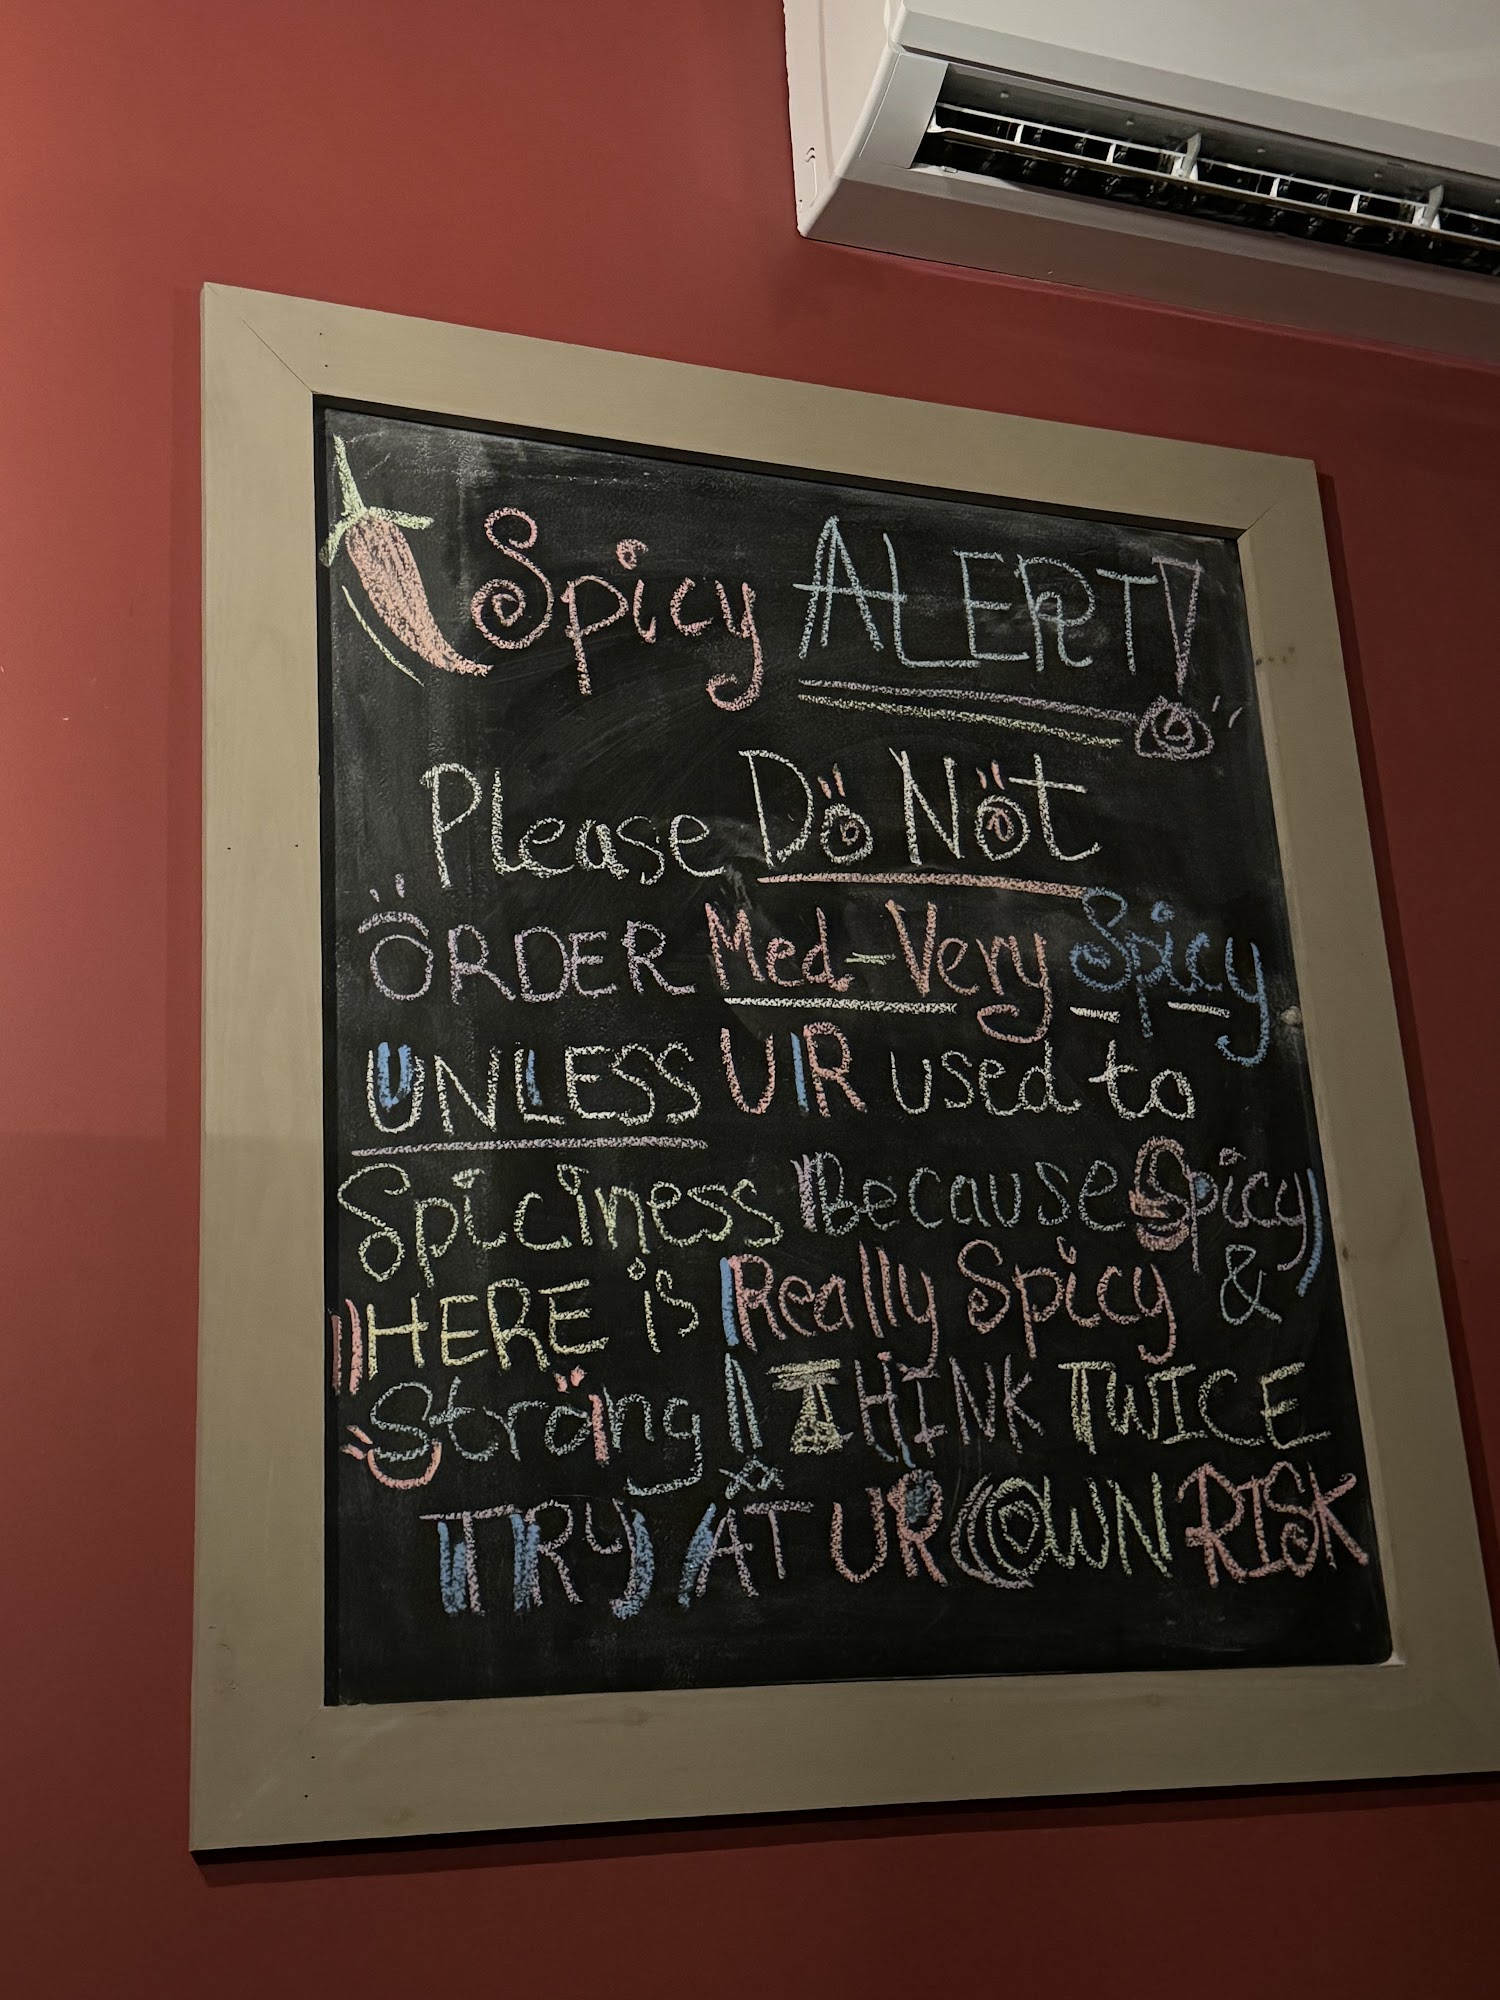 Spicy ALERT!
Please Do Not
ORDER Med-Very Spicy
UNLESS UR used to
Spiciness Because Spicy
HERE is Really Spicy &
Strong THINK TWICE
TRY AT UR OWN RISK